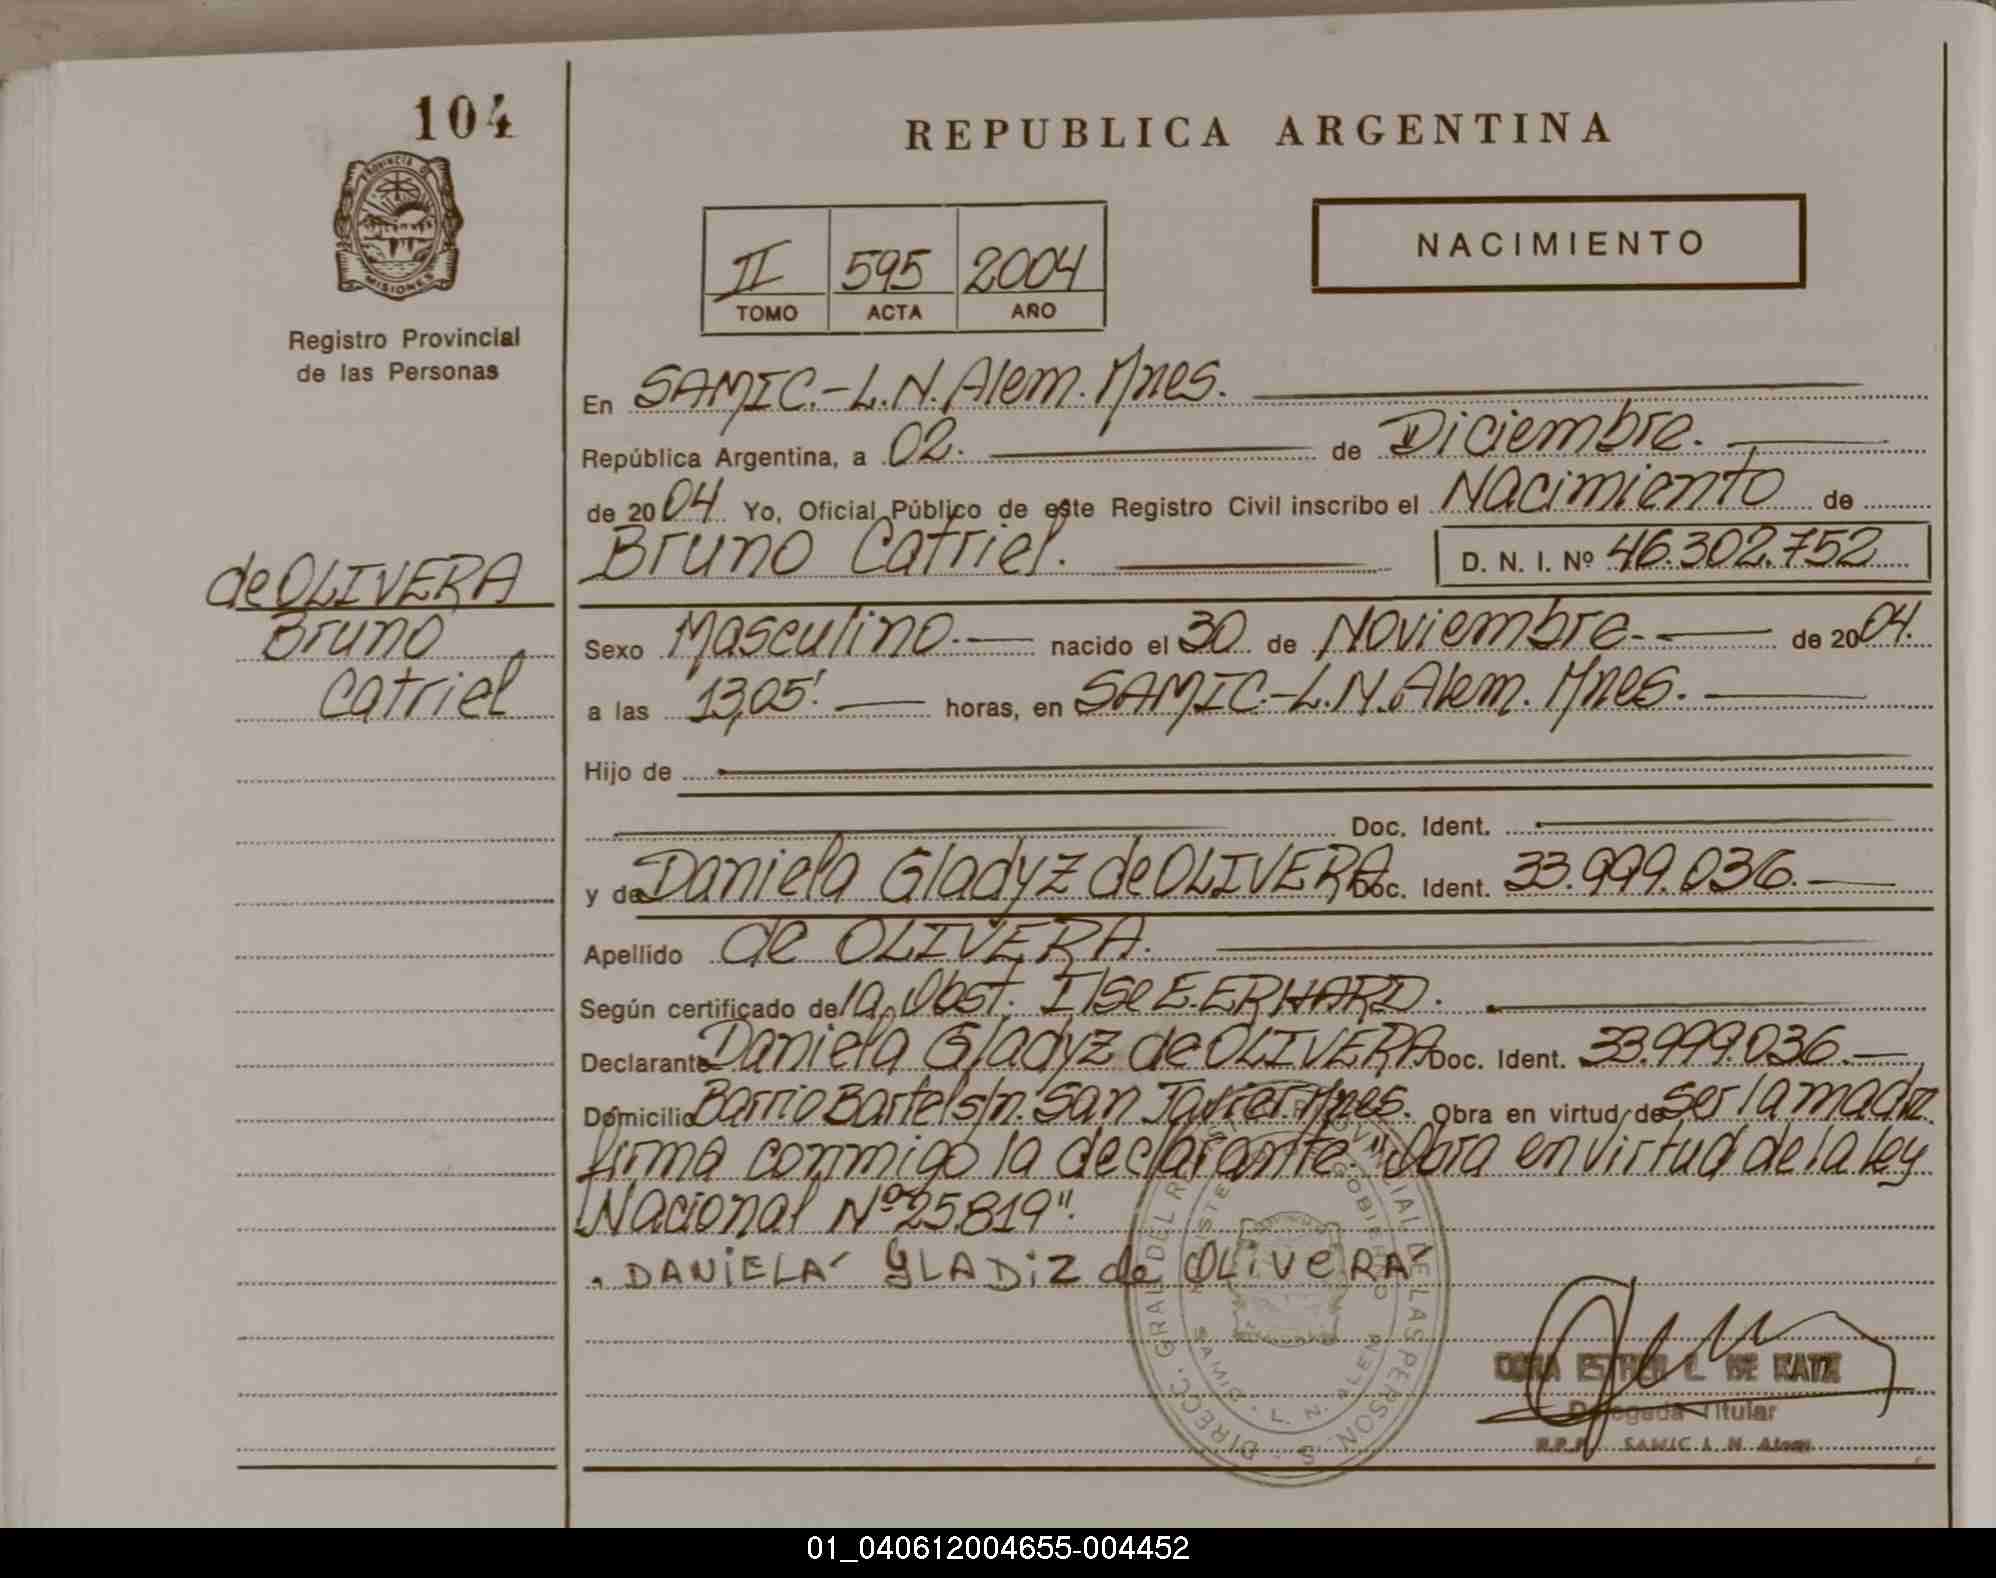 104
PROVINCIA DE
MISIONES
Registro Provincial
de las Personas
de OLIVERA
Bruno
Catriel
REPUBLICA ARGENTINA
II 595 2004
TOMO ACTA AÑO
NACIMIENTO
En SAMIC.-L.N.Alem.Mnes.
República Argentina, a 02. de Diciembre.
de 2004 Yo, Oficial Público de este Registro Civil inscribo el Nacimiento de
Bruno Catriel. D. N. I. Nº 46.302.752
Sexo Masculino.- nacido el 30 de Noviembre.- de 2004.
a las 13,05' horas, en SAMIC.-L.N.Alem.Mnes.
Hijo de
Doc. Ident.
y de Daniela Gladyz de OLIVERA Doc. Ident. 33.999.036.
Apellido de OLIVERA.
Según certificado de la Obst. Ilse E.ERHARD.
Declarante Daniela Gladyz de OLIVERA. Doc. Ident. 33.999.036.
Domicilio Barrio Bartel s/n. San Javier.Mnes. Obra en virtud de ser la madre.
firma conmigo la declarante. "Obra en virtud de la ley
Nacional Nº 25819".
DANiELA GLADiZ de OLiVeRA
DIRECC. GRAL DEL REG. PROVINCIAL DE LAS PERSONAS
MINISTERIO DE GOBIERNO
SAMIC - L. N. ALEM
ESTHER DE KATZ
Delegada Titular
R.P.P. SAMIC L. N. Alem
01_040612004655-004452